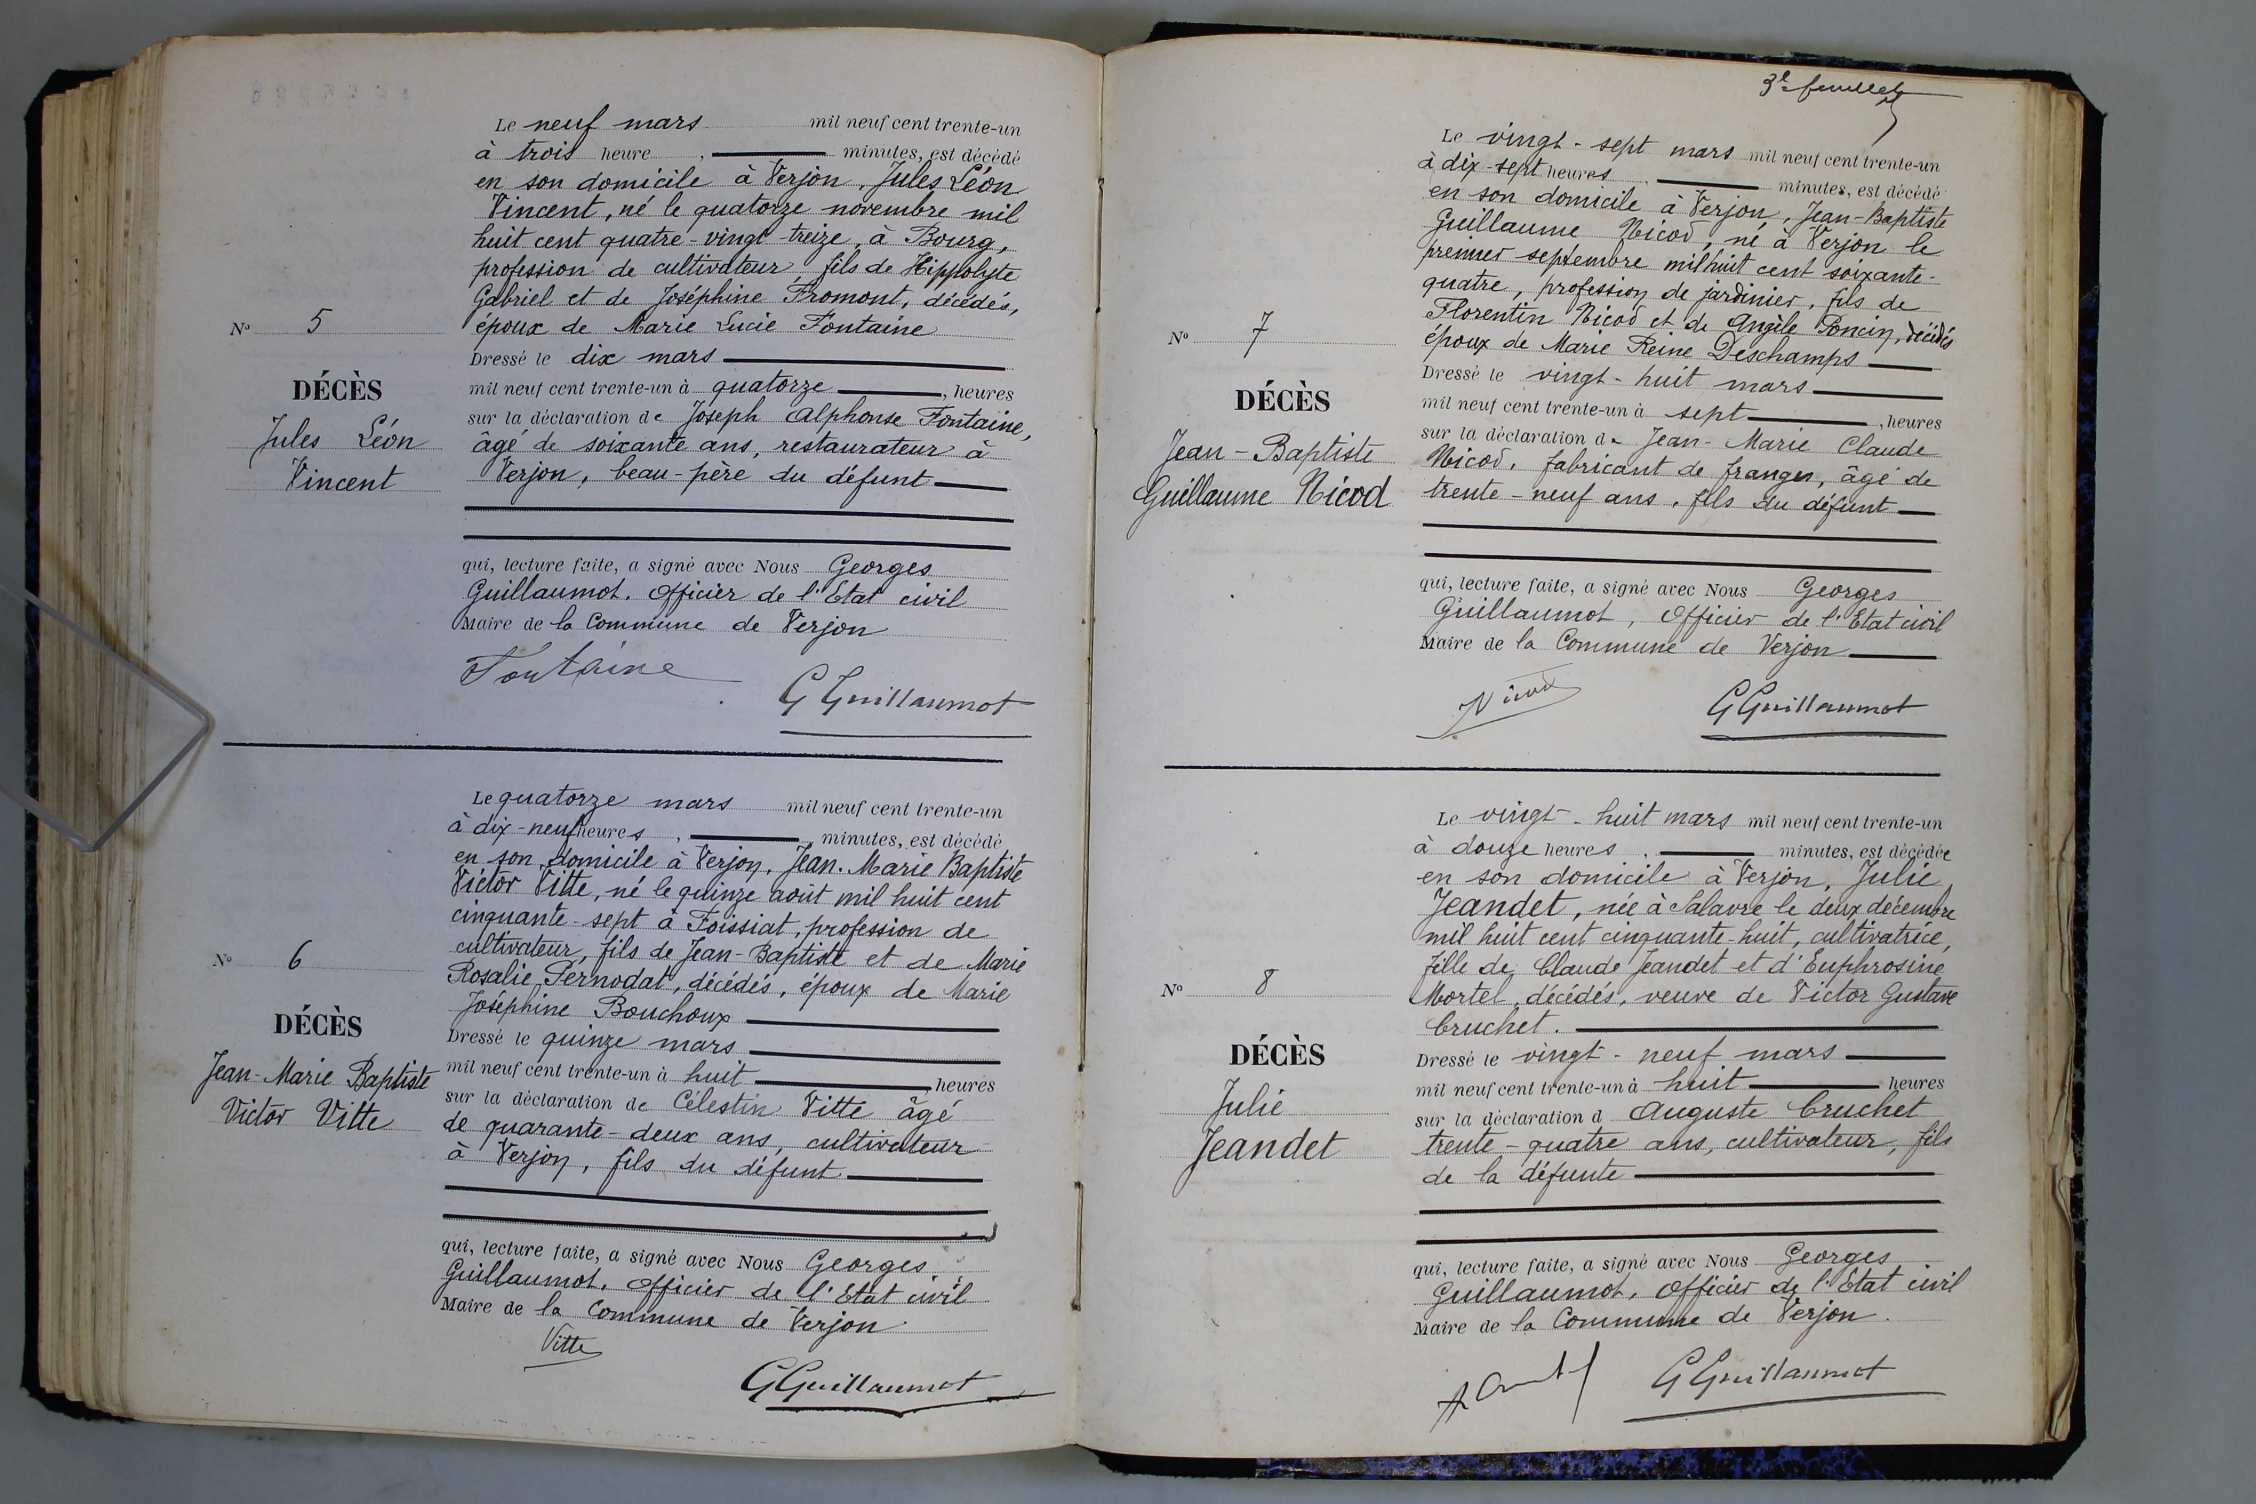 Le neuf mars mil neuf cent trente-un
à trois heure , minutes, est décédé
en son domicile à Verjon, Jules Léon
Vincent, né le quatorze novembre mil
huit cent quatre-vingt-treize, à Bourg,
profession de cultivateur, fils de Hippolyte
Gabriel et de Joséphine Fromont, décédés,
époux de Marie Lucie Fontaine
Dressé le dix mars
mil neuf cent trente-un à quatorze , heures
sur la déclaration de Joseph Alphonse Fontaine,
âgé de soixante ans, restaurateur à
Verjon, beau-père du défunt
qui, lecture faite, a signé avec Nous Georges
Guillaumot, Officier de l'Etat civil
Maire de la Commune de Verjon
Fontaine
G Guillaumot
N° 5
DÉCÈS
Jules Léon
Vincent
Le quatorze mars mil neuf cent trente-un
à dix-neuf heures , minutes, est décédé
en son domicile à Verjon, Jean-Marie Baptiste
Victor Vitte, né le quinze août mil huit cent
cinquante-sept à Foissiat, profession de
cultivateur, fils de Jean-Baptiste et de Marie
Rosalie Pernodat, décédés, époux de Marie
Joséphine Bouchoux
Dressé le quinze mars
mil neuf cent trente-un à huit heures
sur la déclaration de Célestin Vitte âgé
de quarante-deux ans, cultivateur
à Verjon, fils du défunt
qui, lecture faite, a signé avec Nous Georges
Guillaumot, Officier de l'Etat civil
Maire de la Commune de Verjon
Vitte
G Guillaumot
N° 6
DÉCÈS
Jean-Marie Baptiste
Victor Vitte
3e feuillet
Le vingt-sept mars mil neuf cent trente-un
à dix-sept heures , minutes, est décédé
en son domicile à Verjon, Jean-Baptiste
Guillaume Nicod, né à Verjon le
premier septembre mil huit cent soixante-
quatre, profession de jardinier, fils de
Florentin Nicod et de Angèle Poncin, décédés
époux de Marie Reine Deschamps
Dressé le vingt-huit mars
mil neuf cent trente-un à sept , heures
sur la déclaration de Jean-Marie Claude
Nicod, fabricant de franges, âgé de
trente-neuf ans, fils du défunt
qui, lecture faite, a signé avec Nous Georges
Guillaumot, Officier de l'Etat civil
Maire de la Commune de Verjon
Nicod
G Guillaumot
N° 7
DÉCÈS
Jean-Baptiste
Guillaume Nicod
Le vingt-huit mars mil neuf cent trente-un
à douze heures , minutes, est décédée
en son domicile à Verjon, Julie
Jeandet, née à Salavre le deux décembre
mil huit cent cinquante-huit, cultivatrice,
fille de Claude Jeandet et d'Euphrosine
Mortel, décédés, veuve de Victor Gustave
Cruchet.
Dressé le vingt-neuf mars
mil neuf cent trente-un à huit heures
sur la déclaration d Auguste Cruchet
trente-quatre ans, cultivateur, fils
de la défunte
qui, lecture faite, a signé avec Nous Georges
Guillaumot, Officier de l'Etat civil
Maire de la Commune de Verjon.
G Guillaumot
N° 8
DÉCÈS
Julie
Jeandet